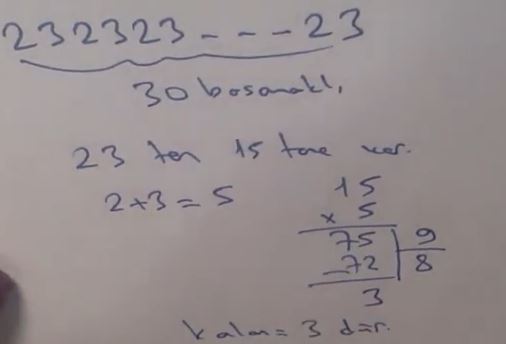 232323---23
30 basamaklı
23 ten 15 tane var.
2+3=5
15
x 5
75 9
-72 8
3
kalan=3 dür.